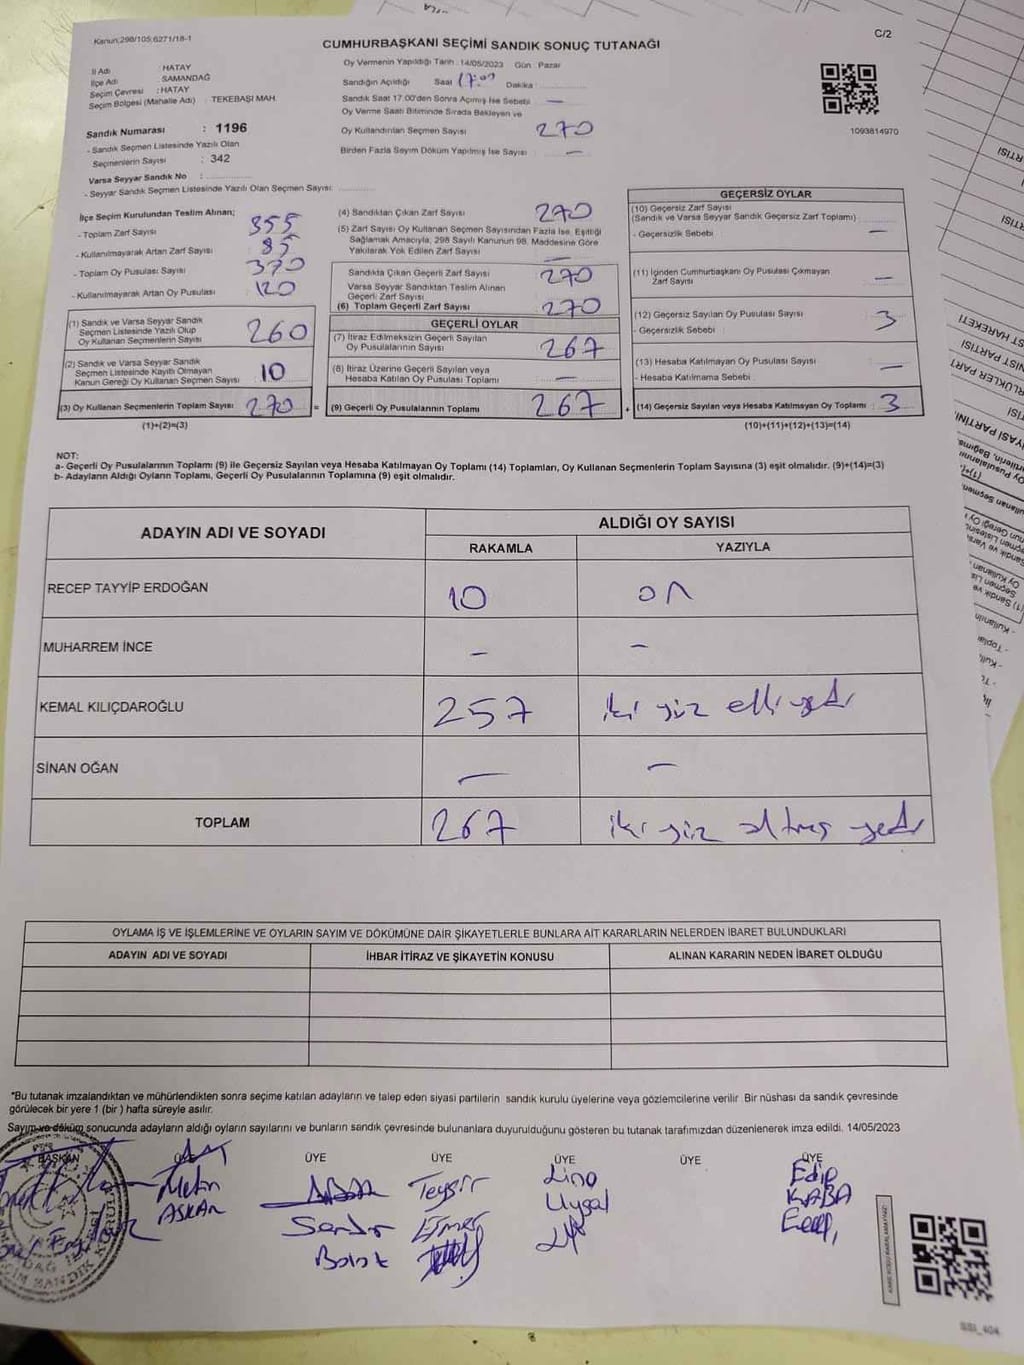 Kanun:298/105;6271/18-1
C/2
CUMHURBAŞKANI SEÇİMİ SANDIK SONUÇ TUTANAĞI
İl Adı : HATAY
İlçe Adı : SAMANDAĞ
Seçim Çevresi : HATAY
Seçim Bölgesi (Mahalle Adı) : TEKEBAŞI MAH.
Sandık Numarası : 1196
- Sandık Seçmen Listesinde Yazılı Olan
Seçmenlerin Sayısı : 342
Varsa Seyyar Sandık No :
- Seyyar Sandık Seçmen Listesinde Yazılı Olan Seçmen Sayısı:
Oy Vermenin Yapıldığı Tarih : 14/05/2023 Gün : Pazar
Sandığın Açıldığı Saat 17:00 Dakika :
Sandık Saat 17.00'den Sonra Açımış İse Sebebi —
Oy Verme Saati Bitiminde Sırada Bekleyen ve
Oy Kullandırılan Seçmen Sayısı 270
Birden Fazla Sayım Döküm Yapılmış İse Sayısı —
1093814970
İlçe Seçim Kurulundan Teslim Alınan;
- Toplam Zarf Sayısı 355
- Kullanılmayarak Artan Zarf Sayısı 85
- Toplam Oy Pusulası Sayısı 370
- Kullanılmayarak Artan Oy Pusulası 120
(1) Sandık ve Varsa Seyyar Sandık
Seçmen Listesinde Yazılı Olup
Oy Kullanan Seçmenlerin Sayısı 260
(2) Sandık ve Varsa Seyyar Sandık
Seçmen Listesinde Kayıtlı Olmayan
Kanun Gereği Oy Kullanan Seçmen Sayısı 10
(3) Oy Kullanan Seçmenlerin Toplam Sayısı 270 =
(1)+(2)=(3)
(4) Sandıktan Çıkan Zarf Sayısı 270
(5) Zarf Sayısı Oy Kullanan Seçmen Sayısından Fazla İse, Eşitliği
Sağlamak Amacıyla, 298 Sayılı Kanunun 98. Maddesine Göre
Yakılarak Yok Edilen Zarf Sayısı —
Sandıkta Çıkan Geçerli Zarf Sayısı 270
Varsa Seyyar Sandıktan Teslim Alınan
Geçerli Zarf Sayısı
(6) Toplam Geçerli Zarf Sayısı 270
GEÇERLİ OYLAR
(7) İtiraz Edilmeksizin Geçerli Sayılan
Oy Pusulalarının Sayısı 267
(8) İtiraz Üzerine Geçerli Sayılan veya
Hesaba Katılan Oy Pusulası Toplamı —
(9) Geçerli Oy Pusulalarının Toplamı 267 +
GEÇERSİZ OYLAR
(10) Geçersiz Zarf Sayısı
(Sandık ve Varsa Seyyar Sandık Geçersiz Zarf Toplamı)
- Geçersizlik Sebebi —
(11) İçinden Cumhurbaşkanı Oy Pusulası Çıkmayan
Zarf Sayısı —
(12) Geçersiz Sayılan Oy Pusulası Sayısı 3
- Geçersizlik Sebebi
(13) Hesaba Katılmayan Oy Pusulası Sayısı —
- Hesaba Katılmama Sebebi
(14) Geçersiz Sayılan veya Hesaba Katılmayan Oy Toplamı 3
(10)+(11)+(12)+(13)=(14)
NOT:
a- Geçerli Oy Pusulalarının Toplamı (9) ile Geçersiz Sayılan veya Hesaba Katılmayan Oy Toplamı (14) Toplamları, Oy Kullanan Seçmenlerin Toplam Sayısına (3) eşit olmalıdır. (9)+(14)=(3)
b- Adayların Aldığı Oyların Toplamı, Geçerli Oy Pusulalarının Toplamına (9) eşit olmalıdır.
ADAYIN ADI VE SOYADI
ALDIĞI OY SAYISI
RAKAMLA YAZIYLA
RECEP TAYYİP ERDOĞAN 10 on
MUHARREM İNCE — —
KEMAL KILIÇDAROĞLU 257 iki yüz elli yedi
SİNAN OĞAN — —
TOPLAM 267 iki yüz altmış yedi
OYLAMA İŞ VE İŞLEMLERİNE VE OYLARIN SAYIM VE DÖKÜMÜNE DAİR ŞİKAYETLERLE BUNLARA AİT KARARLARIN NELERDEN İBARET BULUNDUKLARI
ADAYIN ADI VE SOYADI İHBAR İTİRAZ VE ŞİKAYETİN KONUSU ALINAN KARARIN NEDEN İBARET OLDUĞU
*Bu tutanak imzalandıktan ve mühürlendikten sonra seçime katılan adayların ve talep eden siyasi partilerin sandık kurulu üyelerine veya gözlemcilerine verilir. Bir nüshası da sandık çevresinde
görülecek bir yere 1 (bir) hafta süreyle asılır.
Sayım ve döküm sonucunda adayların aldığı oyların sayılarını ve bunların sandık çevresinde bulunanlara duyurulduğunu gösteren bu tutanak tarafımızdan düzenlenerek imza edildi. 14/05/2023
BAŞKAN ÜYE ÜYE ÜYE ÜYE ÜYE ÜYE
Metin
ASKAR
Teysir
Lina
Uysal
Edip
KABA
SSI_404